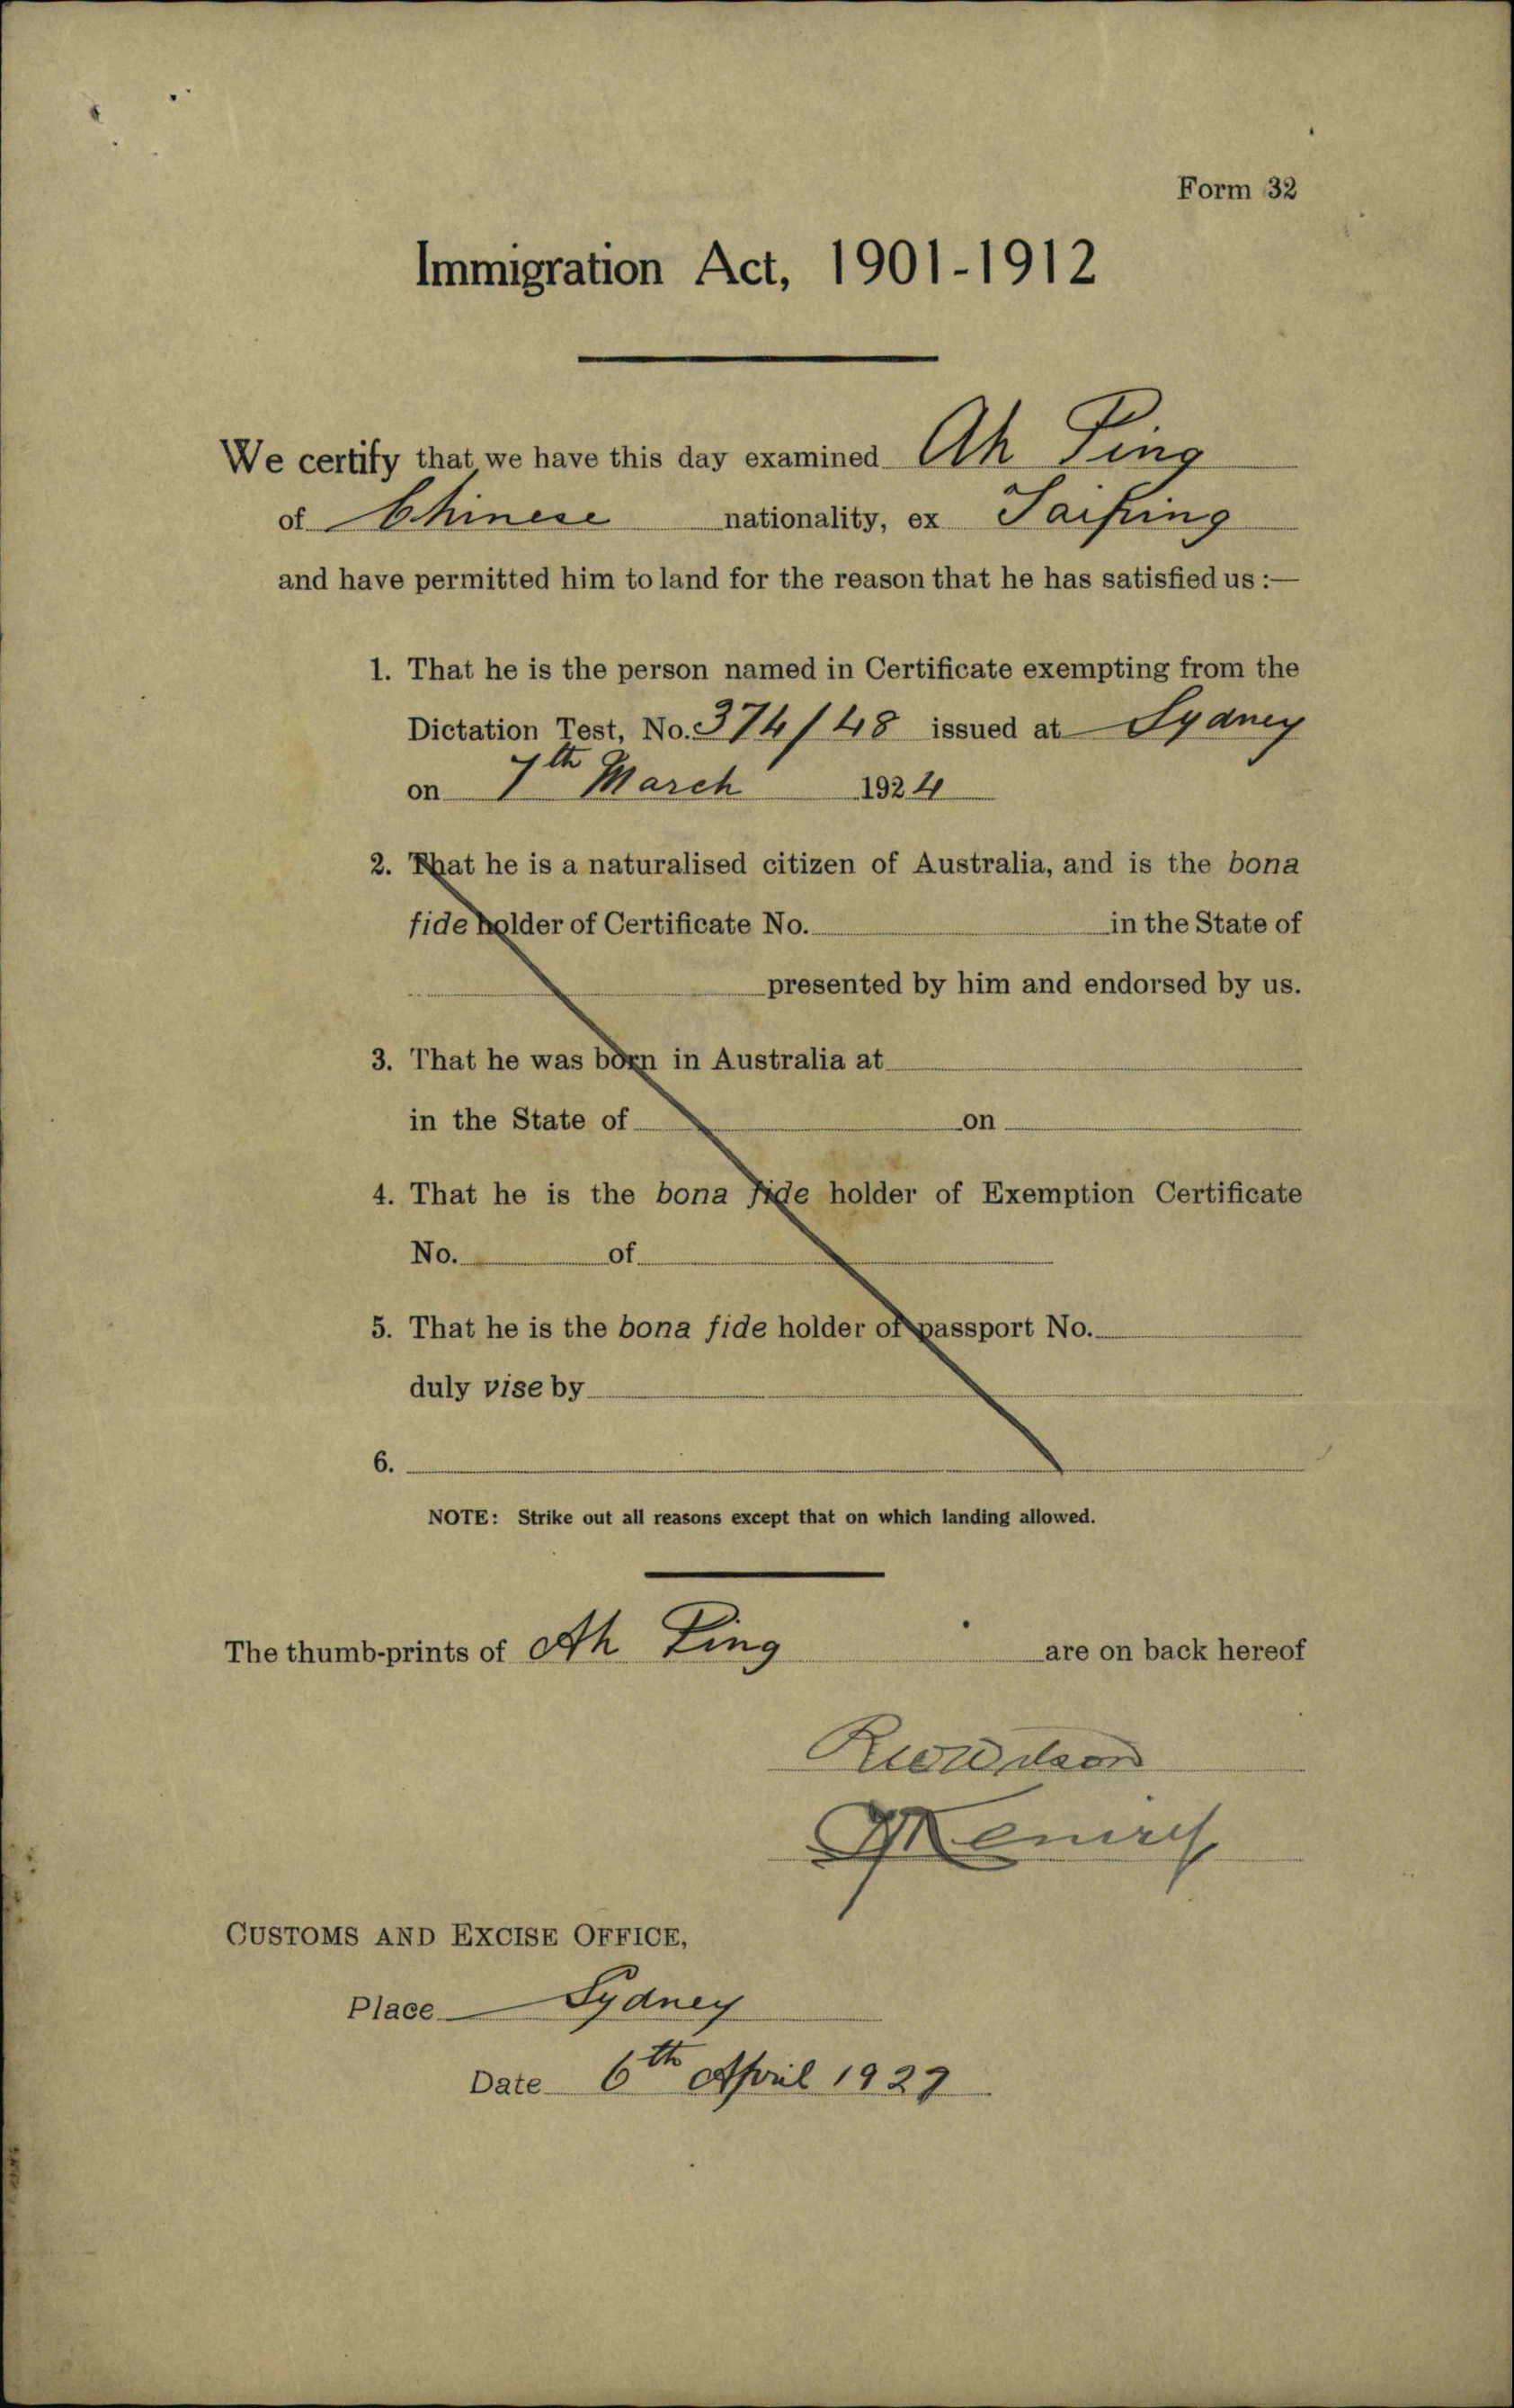 Form 32
Immigration Act, 1901-1912
We certify that we have this day examined Ah Ping
of Chinese nationality, ex Taiping
and have permitted him to land for the reason that he has satisfied us :—
1. That he is the person named in Certificate exempting from the
Dictation Test, No. 374/48 issued at Sydney
on 7th March 1924
2. That he is a naturalised citizen of Australia, and is the bona
fide holder of Certificate No. in the State of
presented by him and endorsed by us.
3. That he was born in Australia at
in the State of on
4. That he is the bona fide holder of Exemption Certificate
No. of
5. That he is the bona fide holder of passport No.
duly vise by
6.
NOTE: Strike out all reasons except that on which landing allowed.
The thumb-prints of Ah Ping are on back hereof
CUSTOMS AND EXCISE OFFICE,
Place Sydney
Date 6th April 1927